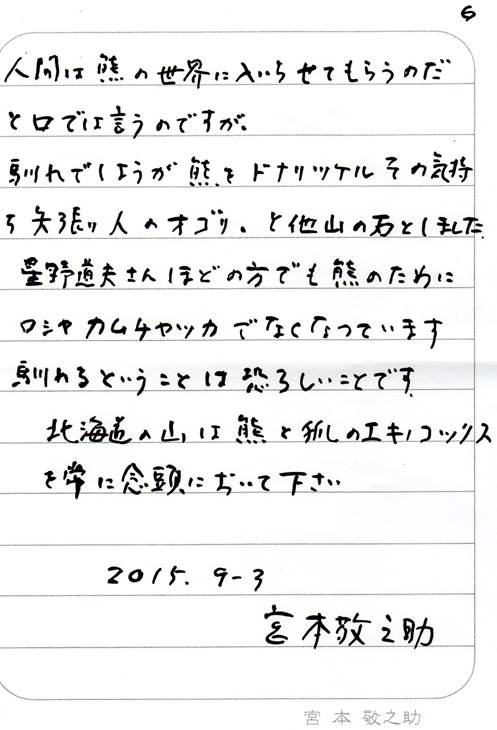 6
人間は熊の世界に入らせてもらうのだ
と口では言うのですが。
馴れでしょうが熊をドナリツケルその気持
ち矢張り人のオゴリ。と他山の石としました
星野道夫さんほどの方でも熊のために
ロシヤカムチヤッカでなくなっています
馴れるということは恐ろしいことです
北海道の山は熊と狐のエキノコックス
を常に念頭において下さい
2015. 9-3
宮本敬之助
宮本敬之助